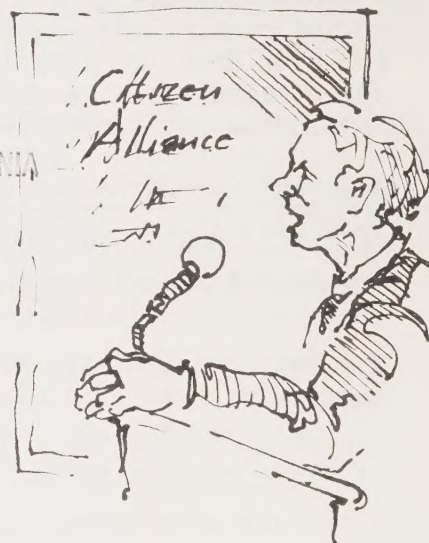 Citizen
Alliance
NIA